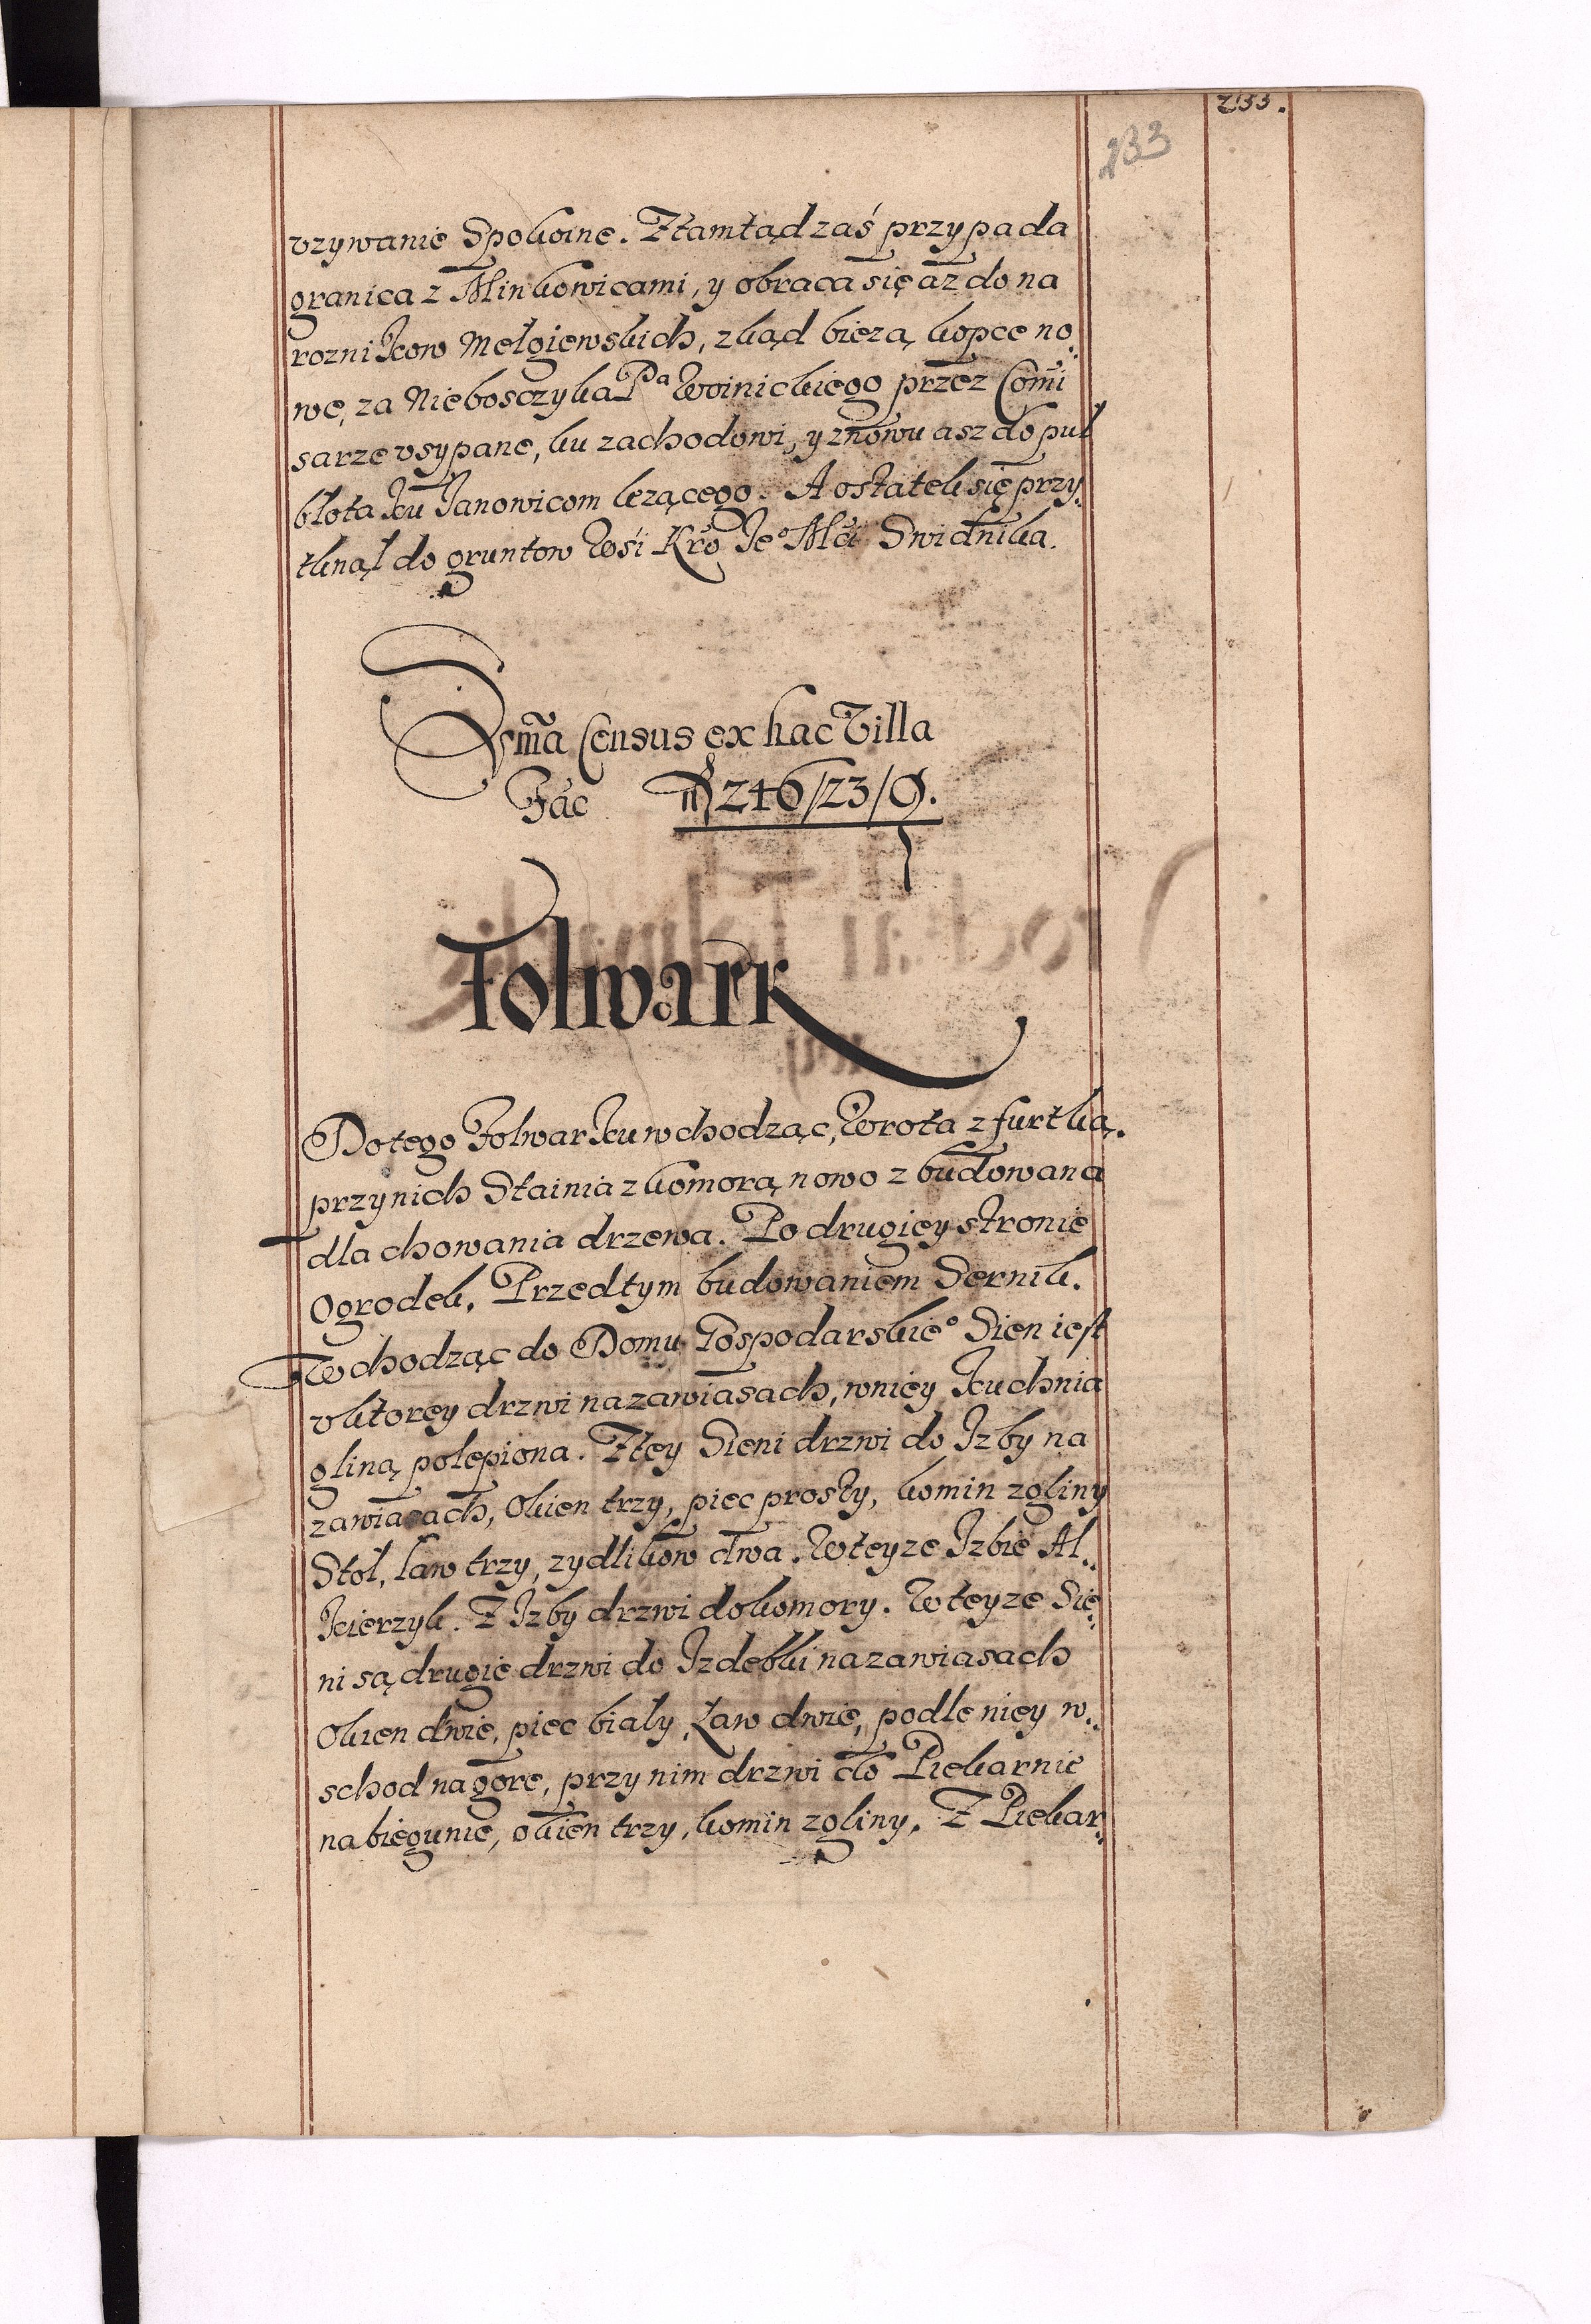 233.
233
vzywanie Spokoine. Ztamtąd zaś przypada
granica z Minkowicami, y obraca się az do na
roznikow Mełgiewskich, zkąd bierzą kopce no„
we, za Nieboszczyka Pa Woinickiego przez Comi
sarze vsypane, ku zachodowi, y znowu asz do puł
błota ku Janowicom lezącego. A ostatek się przy„
tknął do gruntow Wśi Kro Jeo Mći Swidnika.
Sma Census ex hac Villa
Fac fl 246/23/9.
Folwark
Do tego Folwarku wchodząc, Wrota z furtką.
przy nich Stainia z komorą nowo zbudowana
dla chowania drzewa. Po drugiey stronie
Ogrodek. Przed tym budowaniem Sernik.
Wchodząc do Domu Gospodarskieo Sien iest
v ktorey drzwi na zawiasach, w niey Kuchnia
gliną polepiona. Z tey Sieni drzwi do Izby na
zawiasach, Okien trzy, piec prosty, komin z gliny
Stoł, ław trzy, zydlikow dwa. W teyze Izbie Al„
kierzyk. Z Izby drzwi do komory. W teyze Sie„
ni są drugie drzwi do Izdebki na zawiasach
Okien dwie, piec biały, Ław dwie, podle niey w„
schod na gorę, przy nim drzwi do Piekarnie
na biegunie, okien trzy, komin z gliny. Z Piekar„